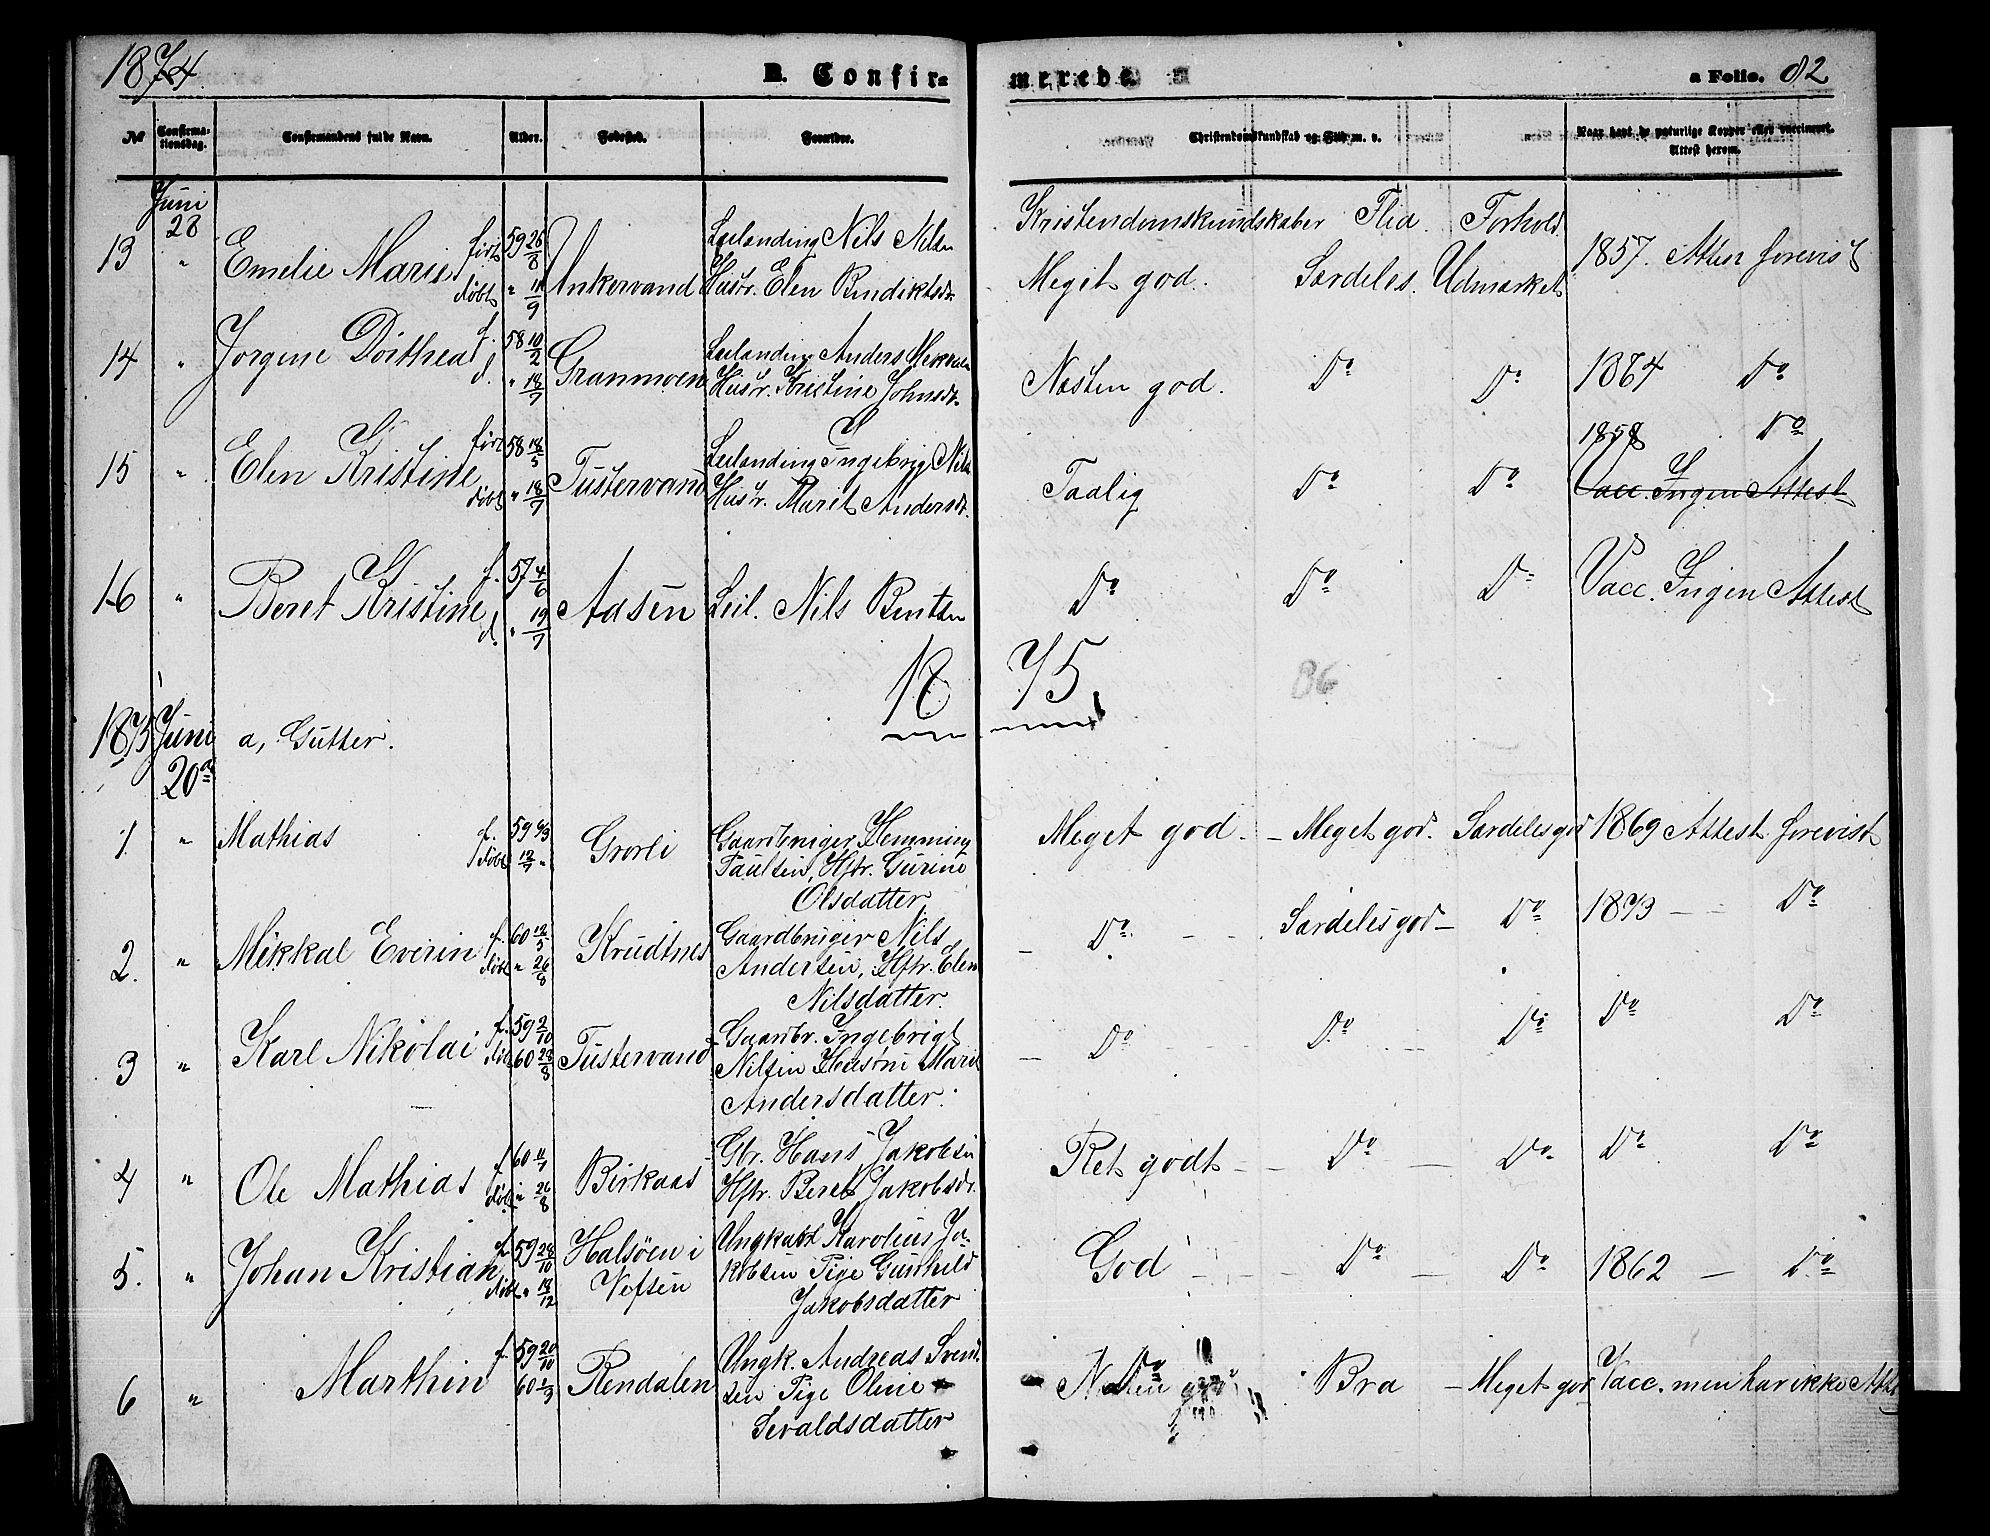 1874. B. Confir= merede. a Folio. 82
№ Confirmationsdag. Confirmandens fulde Navn. Alder. Fødested. Forældre. Christendomskundskab og Flid m. v. Naar havt de naturlige Kopper eller vaccineret. Attest herom.
Juni
28 Kristendomskundskaber Flid. Forhold
13 " Emelie Marie født 59 26/8 døbt " 11/9 Unkervand Leilænding Nils Nilsen
Husr. Elen Bendiktsdr. Meget god. Særdeles. Udmærket 1857. Attest forevist
14 " Jorgine Dorthea f. 58 10/2 d. " 18/7 Granmoen Leilænding Anders
Husr. Kristine Johnsdr. Næsten god. Do Do 1864 Do
1858 Do
15 " Elen Kristine født 58 18/5 døbt " 18/7 Tustervand Leilænding Ingebrig Nils
Husr. Marit Andersdr. Taalig Do Do Vacc. Ingen Attest
16 " Beret Kristine f. 57 4/6 d. " 19/7 Aasen Leil. Nils Bentsen Do Do Do Vacc. Ingen Attest
18 75. 86
1875 Juni a, Gutter.
20de
1 " Mathias f. 59 døbt 12/7 " Grorli Gaardbruger Hemming
Paulsen, Hstr. Gurine
Olsdatter Meget god. - Meget god. Særdeles god 1869 Attest forevist
2. " Mikkal Everin f. 60 12/5 døbt " 26/8 Krudtnes Gaardbruger Nils
Andersen, Hstr. Elen
Nilsdatter. - Do - - Særdeles god - Do 1873 - - Do
3 " Karl Nikolai f. 59 2/10 døbt 60 28/8 Tustervand Gaardbr. Ingebrigt
Nilsen Hustru Marit
Andersdatter. - Do - Do - Do Do Do
4 " Ole Mathias f. 60 døbt " 26/8 Birkaas Gbr. Hans Jakobsen
Hstr. Beret Jakobsdr. Ret godt - - Do - Do Do Do
5. " Johan Kristian f. 59 28/10 døbt " 18/12 Halsöen i
Vefsen Ungkarl Karolius Ja-
kobsen Pige Gunhild
Jakobsdatter God - - - Do - Do 1862 - Do
6 " Marthin f. 59 20/10 60 1/3 Rendalen Ungk. Andreas Svend-
sen Pige Oline
Sevaldsdatter Næsten god Bra - Meget god Vacc. men har ikke Attest